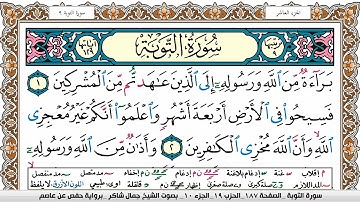 سورة التوبة ٩
الجزء العاشر
سُورَةُ التَّوْبَةِ
بَرَآءَةٌ مِّنَ ٱللَّهِ وَرَسُولِهِۦٓ إِلَى ٱلَّذِينَ عَٰهَدتُّم مِّنَ ٱلْمُشْرِكِينَ ١
فَسِيحُوا۟ فِى ٱلْأَرْضِ أَرْبَعَةَ أَشْهُرٍ وَٱعْلَمُوٓا۟ أَنَّكُمْ غَيْرُ مُعْجِزِى
ٱللَّهِ وَأَنَّ ٱللَّهَ مُخْزِى ٱلْكَٰفِرِينَ ٢ وَأَذَٰنٌ مِّنَ ٱللَّهِ وَرَسُولِهِۦٓ
سورة التوبة . الصفحة ١٨٧ الحزب ١٩ . الجزء ١٠ . بصوت الشيخ جمال شاكر . برواية حفص عن عاصم